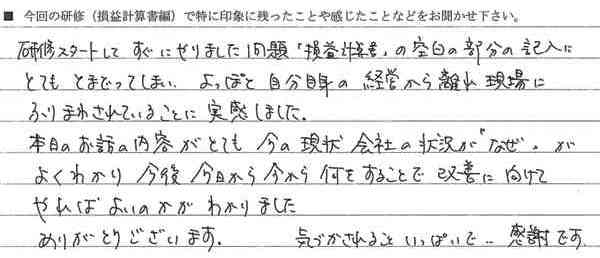 ■ 今回の研修（損益計算書編）で特に印象に残ったことや感じたことなどをお聞かせ下さい。
研修スタートして すぐにやりました 問題「損益計算書」の空白の部分の記入に
とても とまどってしまい、よっぽど 自分自身の 経営から離れ 現場に
ふりまわされていることに 実感しました。
本日のお話の内容がとても 今の現状 会社の状況が"なぜ"が
よくわかり 今後 今日から今から何をすることで 改善に向けて
やればよいのかが わかりました
ありがとうございます。 気づかされること いっぱいで‥感謝です